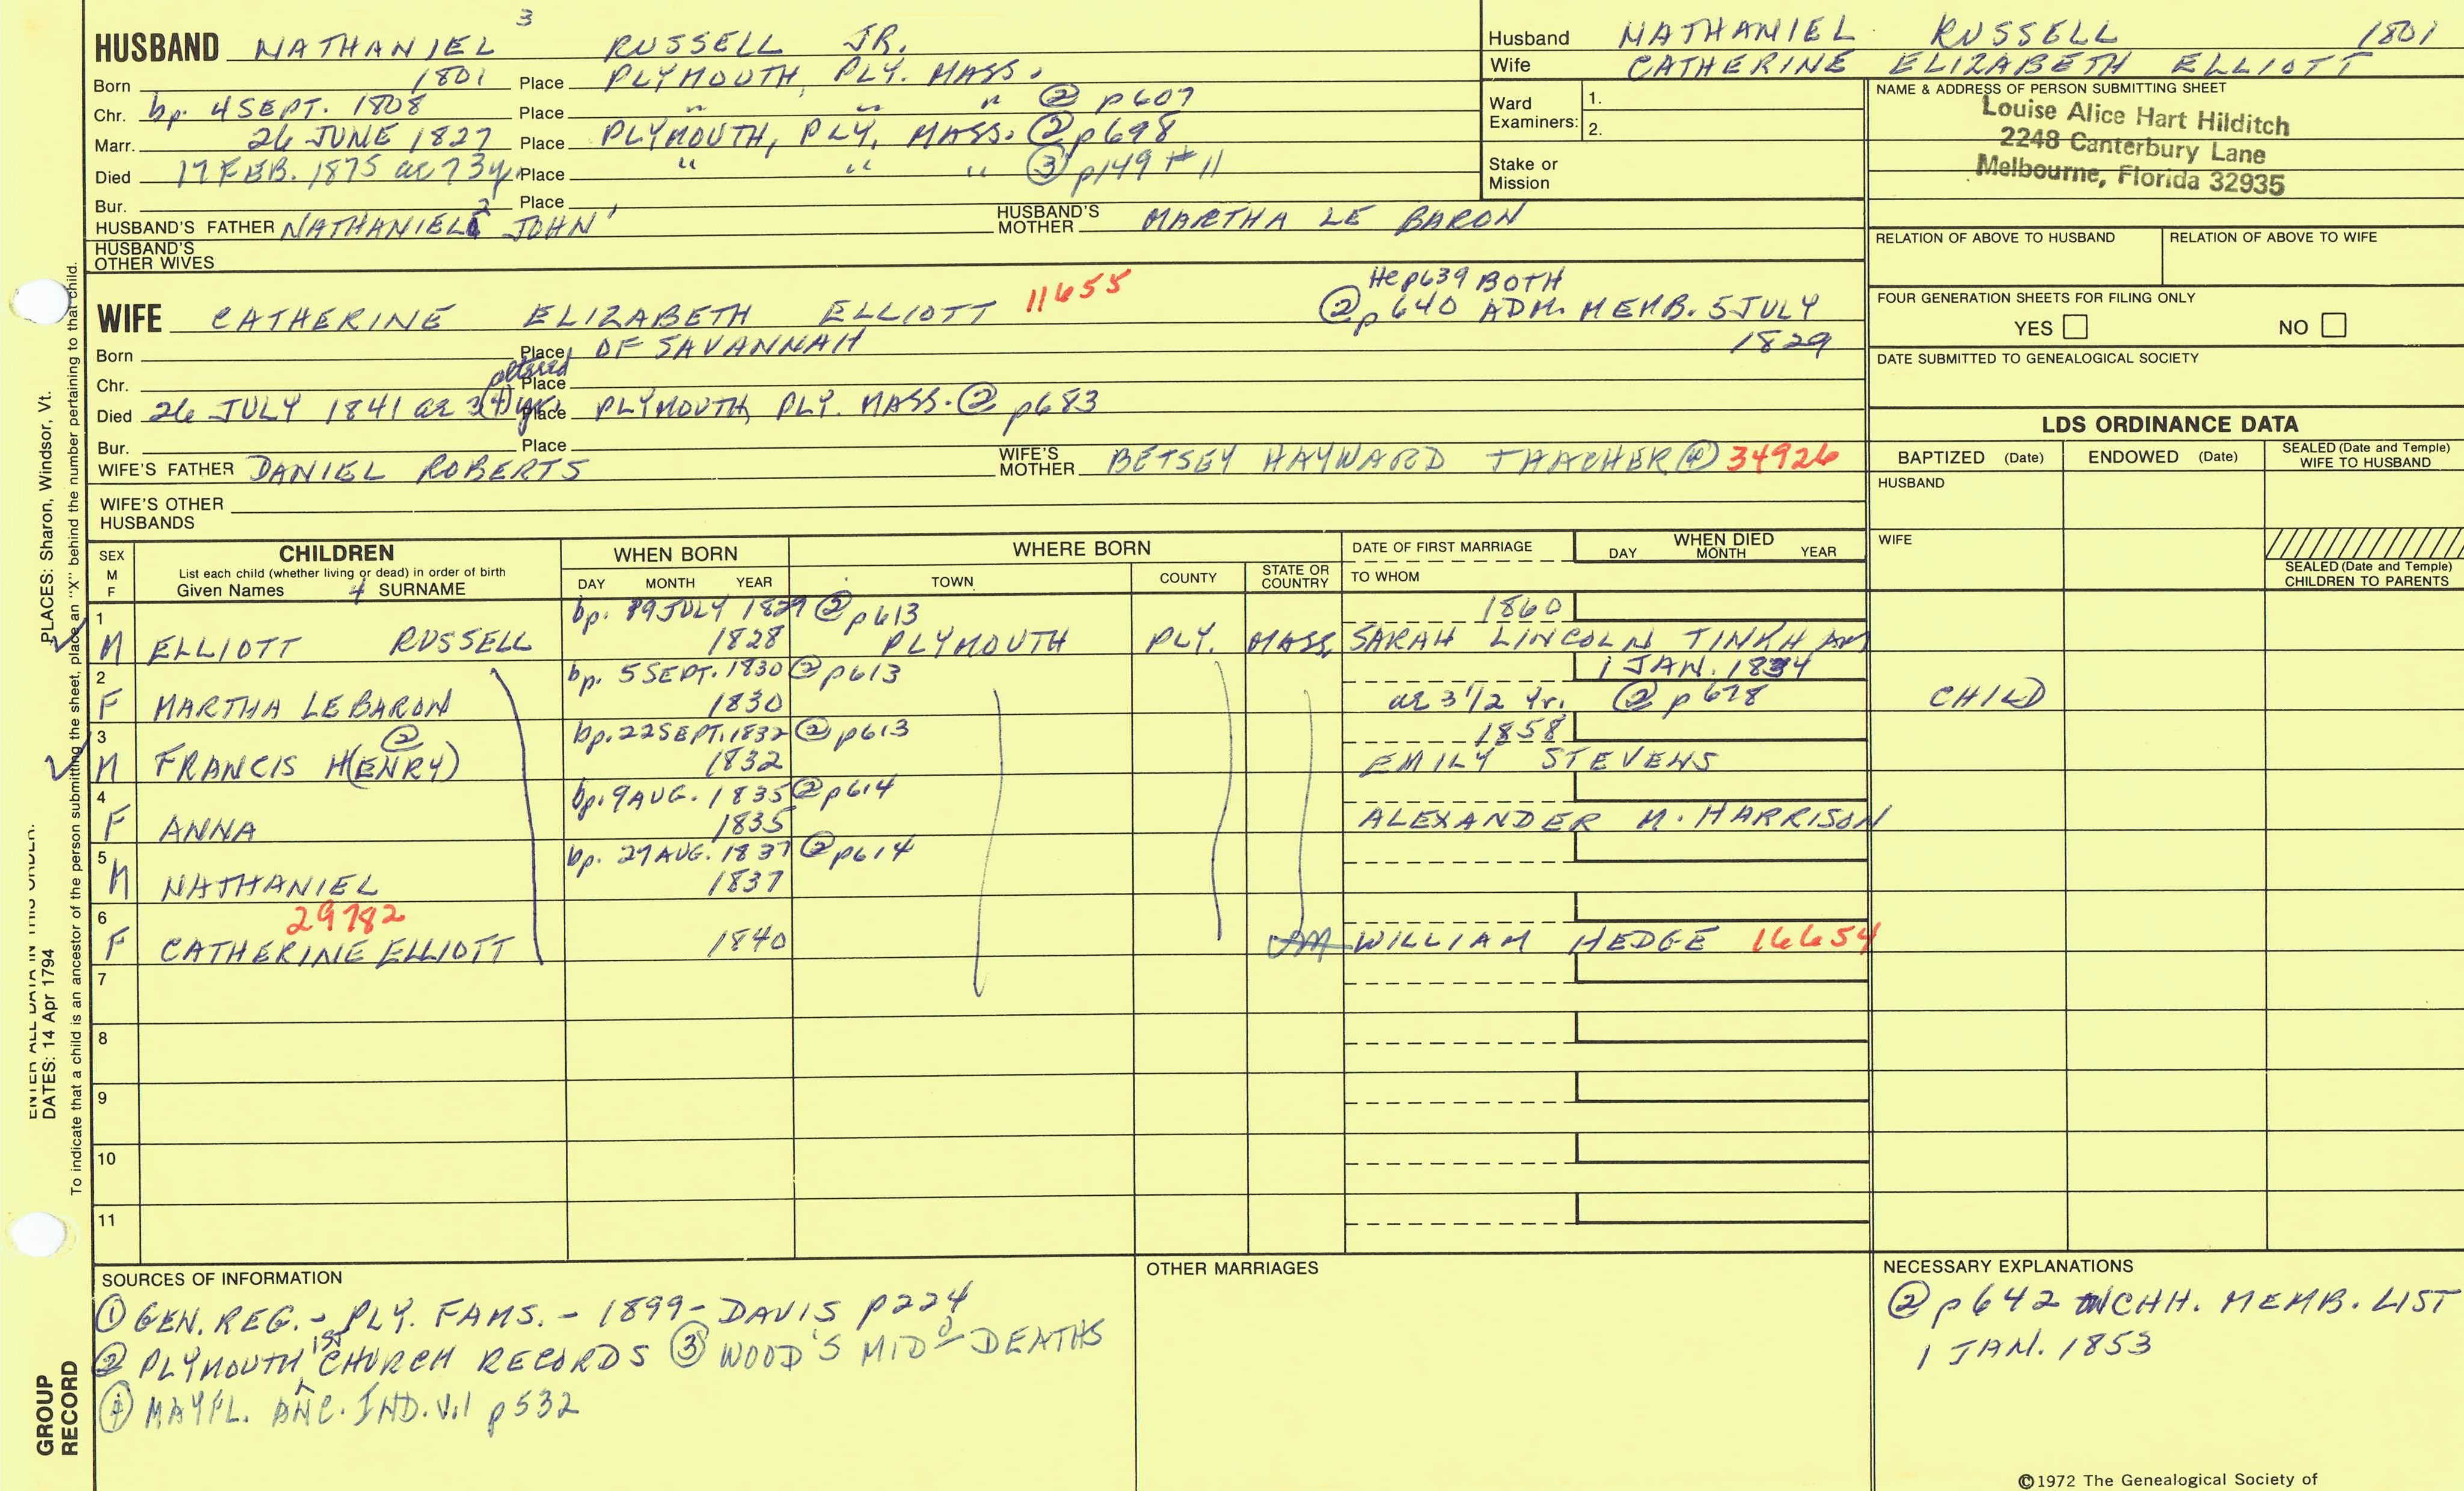 3
HUSBAND NATHANIEL RUSSELL JR.
Born 1801 Place PLYMOUTH, PLY. MASS.
Chr. bp. 4 SEPT. 1808 Place " " " ② p607
Marr. 26 JUNE 1827 Place PLYMOUTH, PLY, MASS. ② p698
Died 17 FEB. 1875 ae 73y. Place " " " ③ p149 #11
Bur. Place
HUSBAND'S FATHER NATHANIEL 2 JOHN 1 HUSBAND'S MOTHER MARTHA LE BARON
HUSBAND'S OTHER WIVES
Husband NATHANIEL RUSSELL 1801
Wife CATHERINE ELIZABETH ELLIOTT
Ward Examiners: 1.
2.
Stake or Mission
NAME & ADDRESS OF PERSON SUBMITTING SHEET
Louise Alice Hart Hilditch
2248 Canterbury Lane
Melbourne, Florida 32935
RELATION OF ABOVE TO HUSBAND RELATION OF ABOVE TO WIFE
FOUR GENERATION SHEETS FOR FILING ONLY
YES NO
DATE SUBMITTED TO GENEALOGICAL SOCIETY
WIFE CATHERINE ELIZABETH ELLIOTT 11655
He p639 BOTH
② p640 ADM. MEMB. 5 JULY
1829
Born Place OF SAVANNAH
Chr. Place
Died 26 JULY 1841 ae 3(4) yr Place PLYMOUTH, PLY. MASS. ② p683
Bur. Place
WIFE'S FATHER DANIEL ROBERTS WIFE'S MOTHER BETSEY HAYWARD THACHER ④ 34926
WIFE'S OTHER HUSBANDS
LDS ORDINANCE DATA
BAPTIZED (Date) ENDOWED (Date) SEALED (Date and Temple) WIFE TO HUSBAND
HUSBAND
WIFE
SEALED (Date and Temple) CHILDREN TO PARENTS
SEX M F
CHILDREN
List each child (whether living or dead) in order of birth
Given Names 4 SURNAME
WHEN BORN DAY MONTH YEAR
WHERE BORN TOWN COUNTY STATE OR COUNTRY
DATE OF FIRST MARRIAGE TO WHOM
WHEN DIED DAY MONTH YEAR
1 bp. JULY 1829 ② p613 1860
M ELLIOTT RUSSELL 1828 PLYMOUTH PLY. MASS. SARAH LINCOLN TINKHAM
2 bp. 5 SEPT. 1830 ② p613 1 JAN. 1834
F MARTHA LEBARON 1830 ae 3 1/2 yr. ② p678 CHILD
3 ② bp. 22 SEPT. 1832 ② p613 1858
M FRANCIS H(ENRY) 1832 EMILY STEVENS
4 bp. 9 AUG. 1835 ② p614
F ANNA 1835 ALEXANDER M. HARRISON
5 bp. 27 AUG. 1837 ② p614
M NATHANIEL 1837
6 29782
F CATHERINE ELLIOTT 1840 WILLIAM HEDGE 16654
7
8
9
10
11
SOURCES OF INFORMATION
① GEN. REG. - PLY. FAMS. - 1899 - DAVIS p224
② PLYMOUTH 1ST CHURCH RECORDS ③ WOOD'S MID'O - DEATHS
④ MAYFL. ANC. IND. V.1 p532
OTHER MARRIAGES
NECESSARY EXPLANATIONS
② p642 CHH. MEMB. LIST
1 JAN. 1853
©1972 The Genealogical Society of
PLACES: Sharon, Windsor, Vt.
ENTER ALL DATA IN THIS ORDER.
DATES: 14 Apr 1794
To indicate that a child is an ancestor of the person submitting the sheet, place an "X" behind the number pertaining to that child.
GROUP RECORD